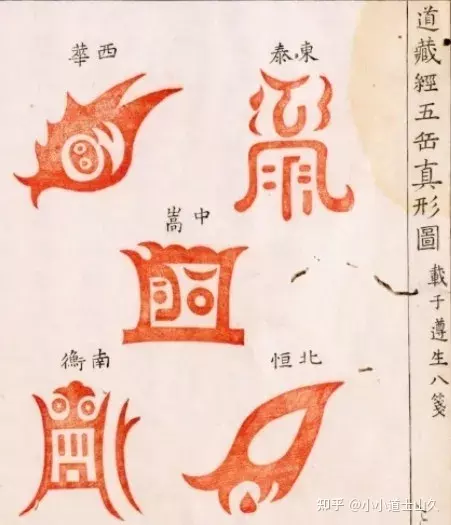 道藏經五岳真形圖
載于遵生八箋
東泰
西華
中嵩
北恒
南衡
知乎 @小小道士山久